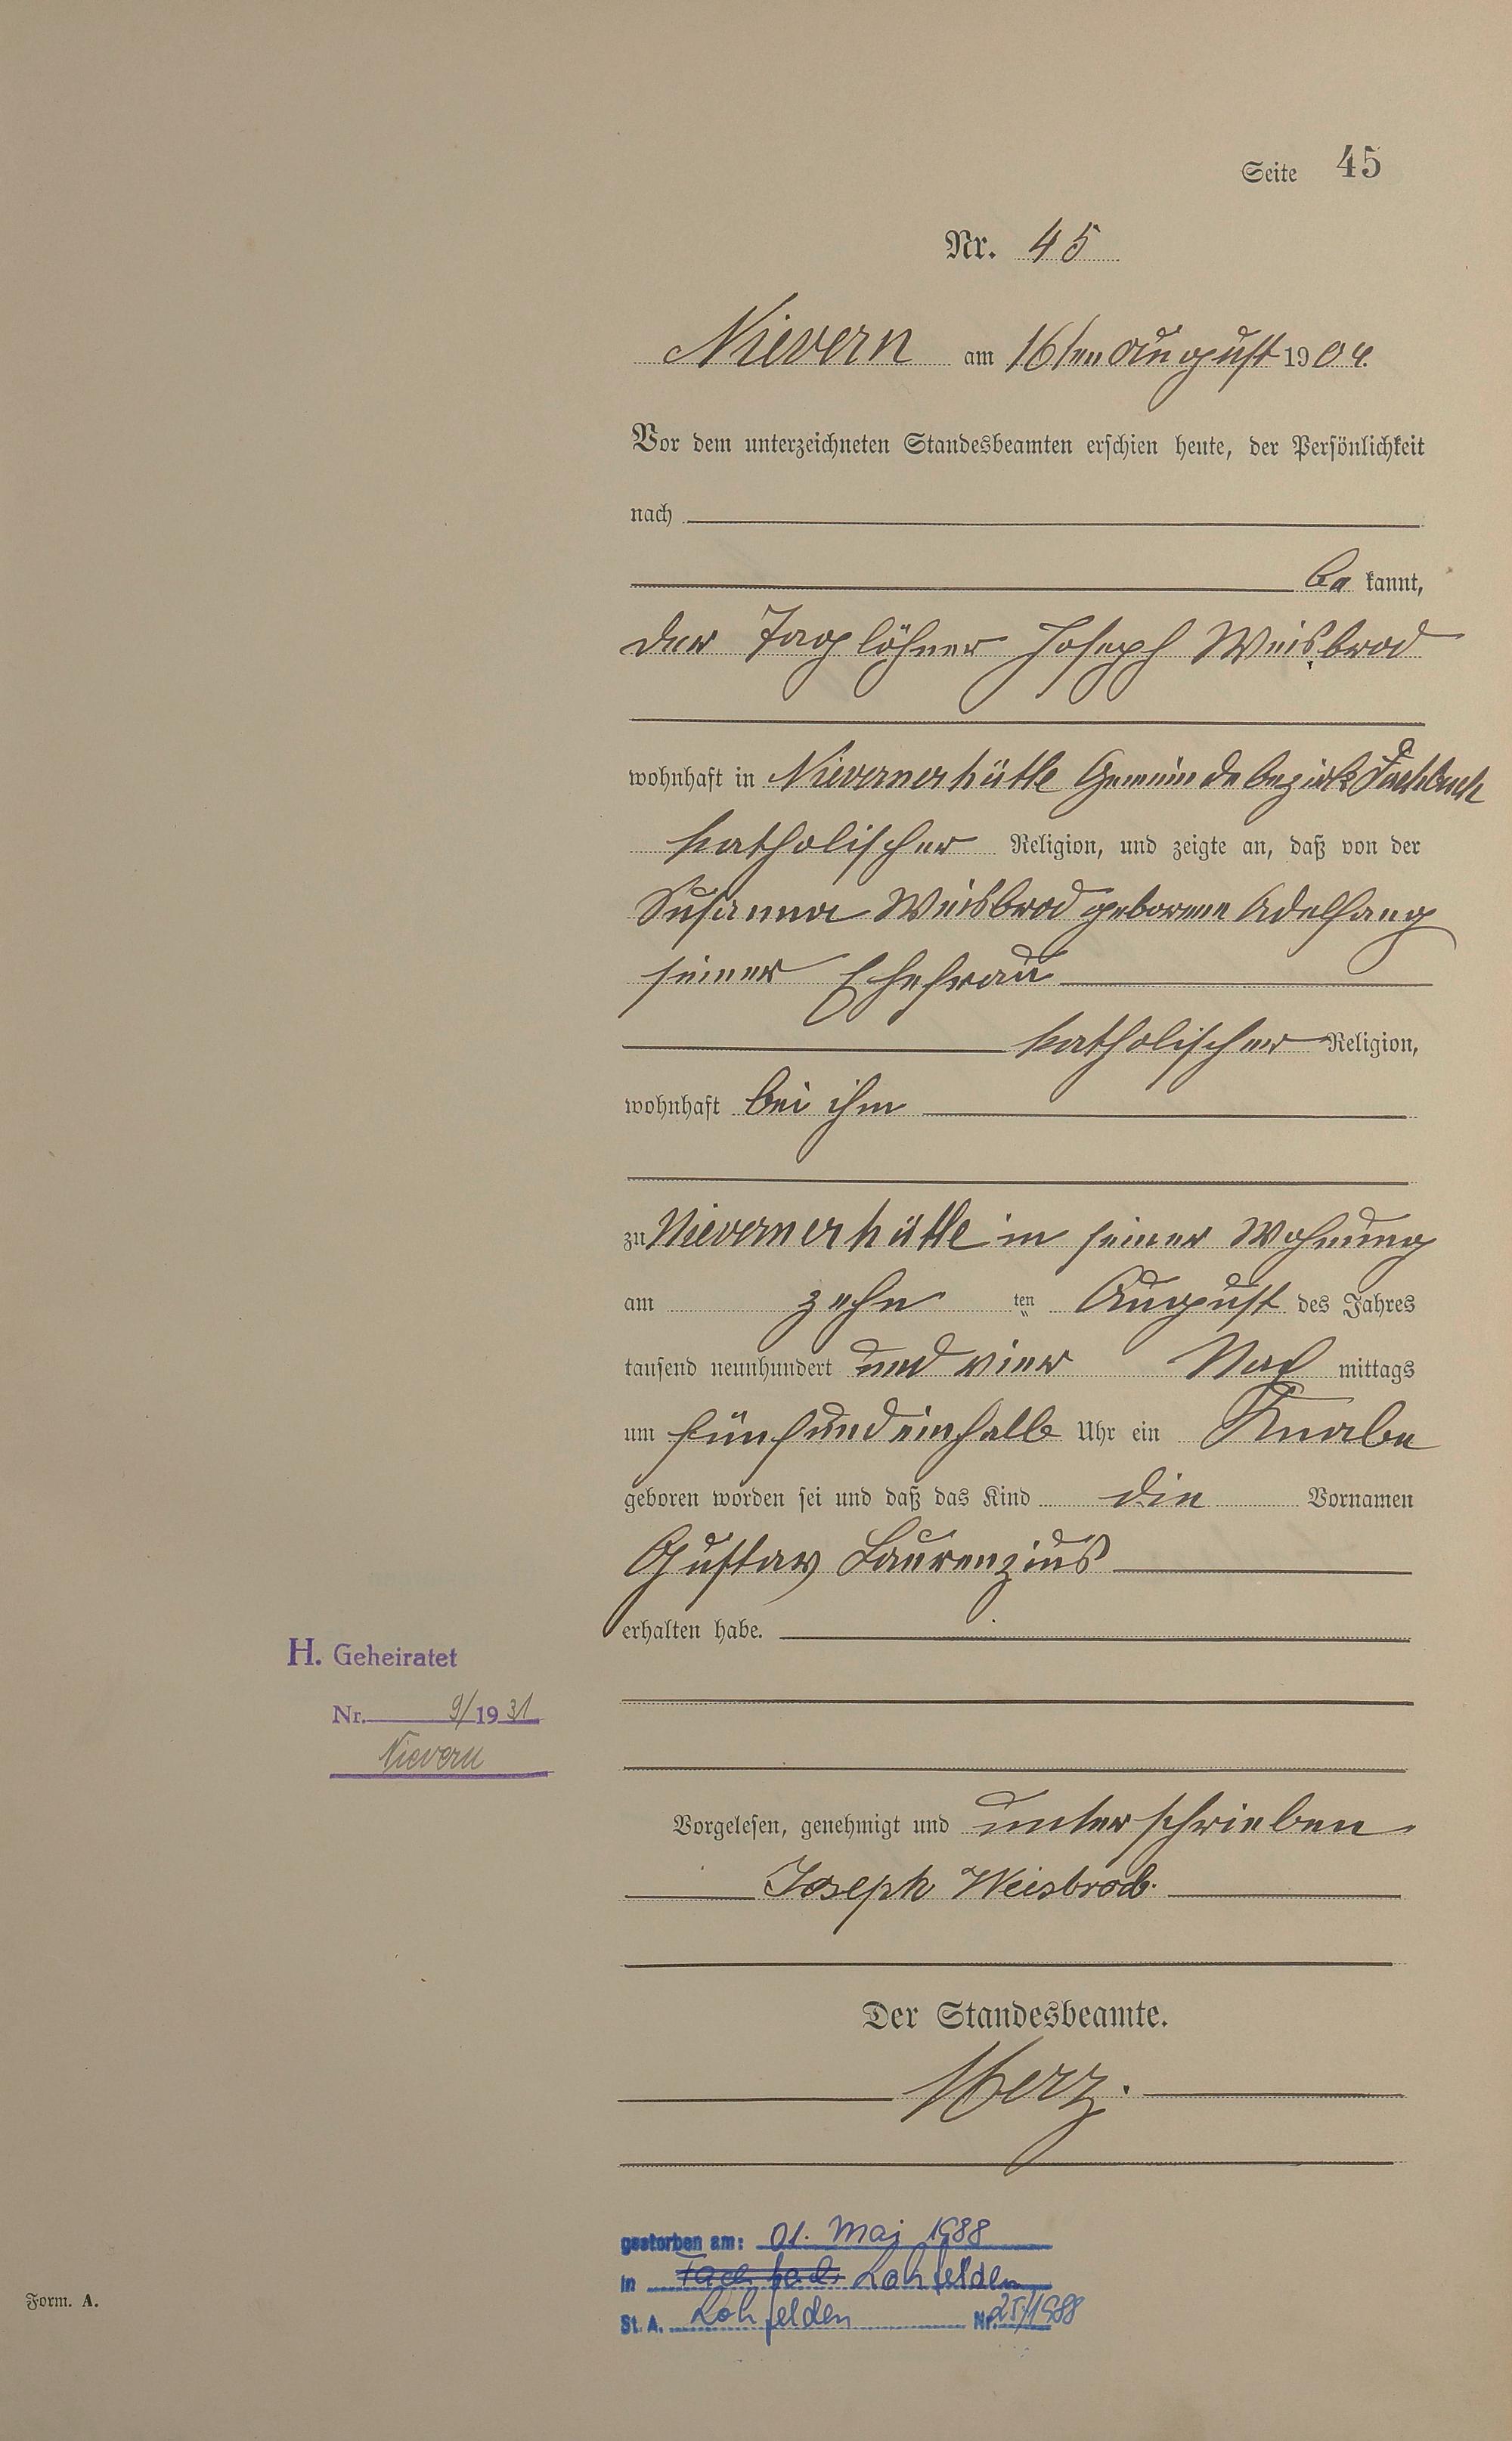 Seite 45
Nr. 45
Nievern am 16ten August 1904
Vor dem unterzeichneten Standesbeamten erschien heute, der Persönlichkeit
nach
be kannt,
der Taglöhner Joseph Weisbrod
wohnhaft in Nievernerhütte Gemeindebezirk Fachbach
katholischer Religion, und zeigte an, daß von der
Susanna Weisbrod geborene Adelfang
seiner Ehefrau
katholischer Religion,
wohnhaft bei ihm
zu Nievernerhütte in seiner Wohnung
am zehn ten August des Jahres
tausend neunhundert und vier Nach mittags
um fünfundeinhalb Uhr ein Knabe
geboren worden sei und daß das Kind die Vornamen
Gustav Laurenzius
erhalten habe.
H. Geheiratet
Nr. 9/1931
Nievern
Vorgelesen, genehmigt und unterschrieben
Joseph Weisbrod.
Der Standesbeamte.
Herz.
gestorben am: 01. Mai 1988
in Fachbach Lohfelden
St. A. Lohfelden Nr. 25/1988
Form. A.